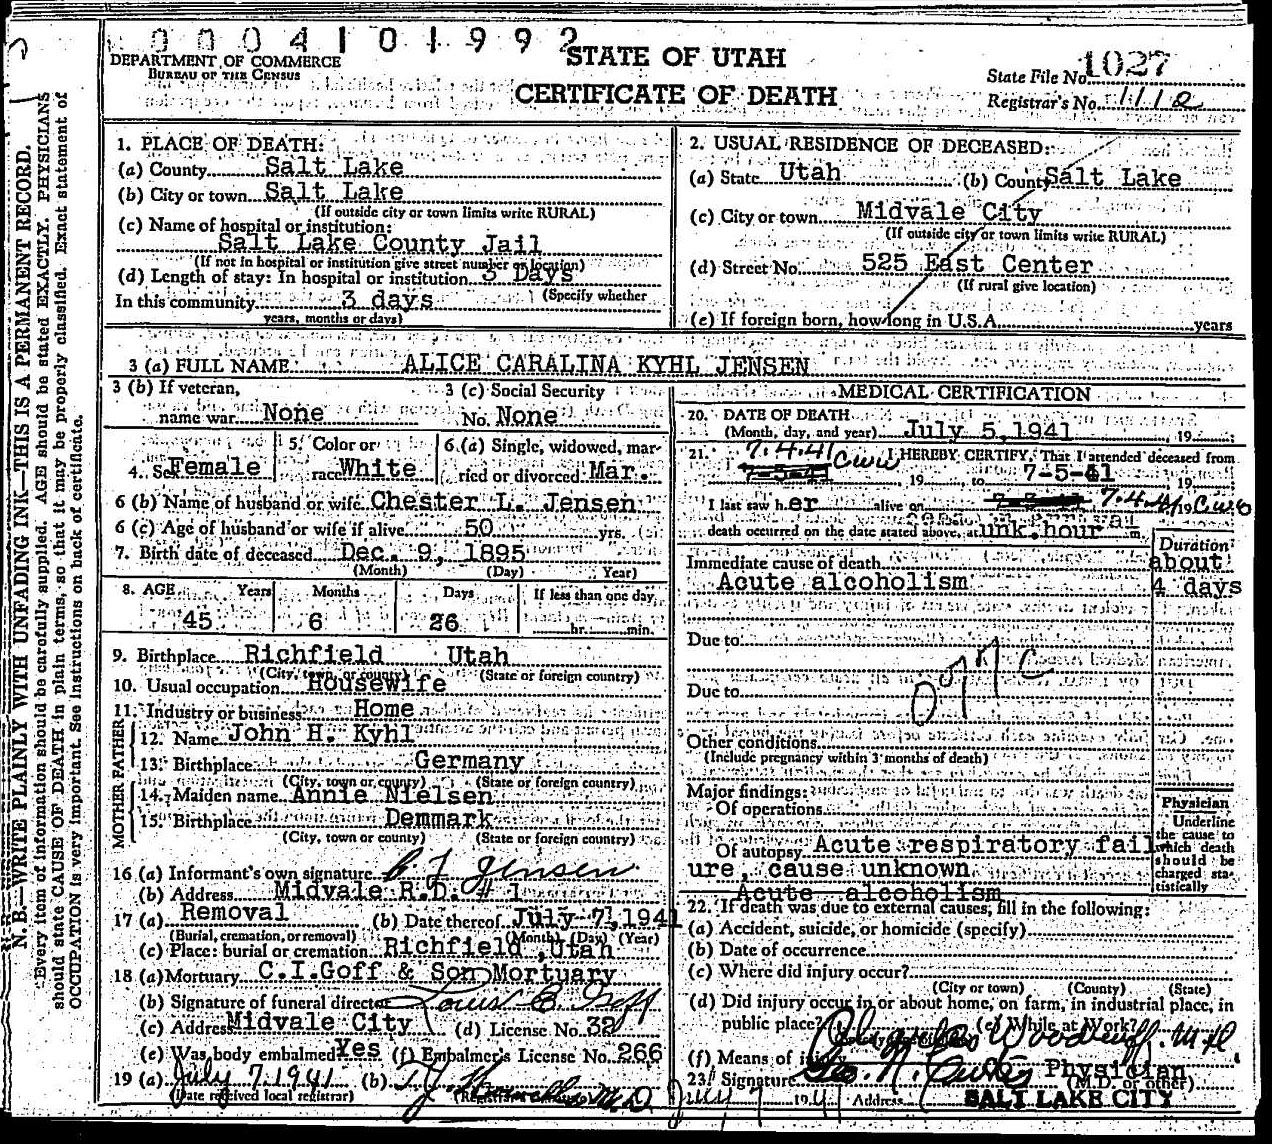 0004101992
DEPARTMENT OF COMMERCE
BUREAU OF THE CENSUS
STATE OF UTAH
CERTIFICATE OF DEATH
State File No. 1027
Registrar's No. 1112
N. B.—WRITE PLAINLY WITH UNFADING INK—THIS IS A PERMANENT RECORD.
Every item of information should be carefully supplied. AGE should be stated EXACTLY. PHYSICIANS
should state CAUSE OF DEATH in plain terms, so that it may be properly classified. Exact statement of
OCCUPATION is very important. See instructions on back of certificate.
1. PLACE OF DEATH:
(a) County Salt Lake
(b) City or town Salt Lake
(If outside city or town limits write RURAL)
(c) Name of hospital or institution:
Salt Lake County Jail
(If not in hospital or institution give street number or location)
(d) Length of stay: In hospital or institution 3 Days
In this community 3 days (Specify whether
years, months or days)
2. USUAL RESIDENCE OF DECEASED:
(a) State Utah (b) County Salt Lake
(c) City or town Midvale City
(If outside city or town limits write RURAL)
(d) Street No. 525 East Center
(If rural give location)
(e) If foreign born, how long in U.S.A. years
3 (a) FULL NAME ALICE CARALINA KYHL JENSEN
3 (b) If veteran,
name war None
3 (c) Social Security
No. None
4. Sex Female
5. Color or
race White
6. (a) Single, widowed, mar-
ried or divorced Mar.
6 (b) Name of husband or wife Chester L. Jensen
6 (c) Age of husband or wife if alive 50 yrs.
7. Birth date of deceased Dec. 9, 1895
(Month) (Day) (Year)
8. AGE Years Months Days If less than one day
45 6 26 hr. min.
9. Birthplace Richfield Utah
(City, town, or county) (State or foreign country)
10. Usual occupation Housewife
11. Industry or business Home
FATHER
12. Name John H. Kyhl
13. Birthplace Germany
(City, town or county) (State or foreign country)
MOTHER
14. Maiden name Annie Nielsen
15. Birthplace Demmark
(City, town or county) (State or foreign country)
16 (a) Informant's own signature C L Jensen
(b) Address Midvale R.D. # 1
17 (a) Removal (b) Date thereof July 7, 1941
(Burial, cremation, or removal) (Month) (Day) (Year)
(c) Place: burial or cremation Richfield, Utah
18 (a) Mortuary C.I.Goff & Son Mortuary
(b) Signature of funeral director Louis B Goff
(c) Address Midvale City (d) License No. 32
(e) Was body embalmed Yes (f) Embalmer's License No. 266
19 (a) July 7.1941 (b) M.D.
(Date received local registrar)
MEDICAL CERTIFICATION
20. DATE OF DEATH
(Month, day, and year) July 5,1941, 19
21. 7.4.41 I HEREBY CERTIFY, That I attended deceased from
7-5-41 CWW, 19, to 7-5-41, 19
I last saw her alive on 7.4.41 19 CWW
death occurred on the date stated above, at unk. hour m.
Duration
Immediate cause of death about
Acute alcoholism 4 days
Due to
Due to
077 C
Other conditions
(Include pregnancy within 3 months of death)
Major findings:
Of operations
Of autopsy Acute respiratory fail
ure, cause unknown
Acute alcoholism
Physician
Underline
the cause to
which death
should be
charged sta-
tistically
22. If death was due to external causes, fill in the following:
(a) Accident, suicide, or homicide (specify)
(b) Date of occurrence
(c) Where did injury occur?
(City or town) (County) (State)
(d) Did injury occur in or about home, on farm, in industrial place, in
public place? (e) While at Work?
Woodruff. M.D
(f) Means of injury
Co. Physician
23. Signature Geo. N. Curtis (M.D. or other)
July 7 1941 Address SALT LAKE CITY